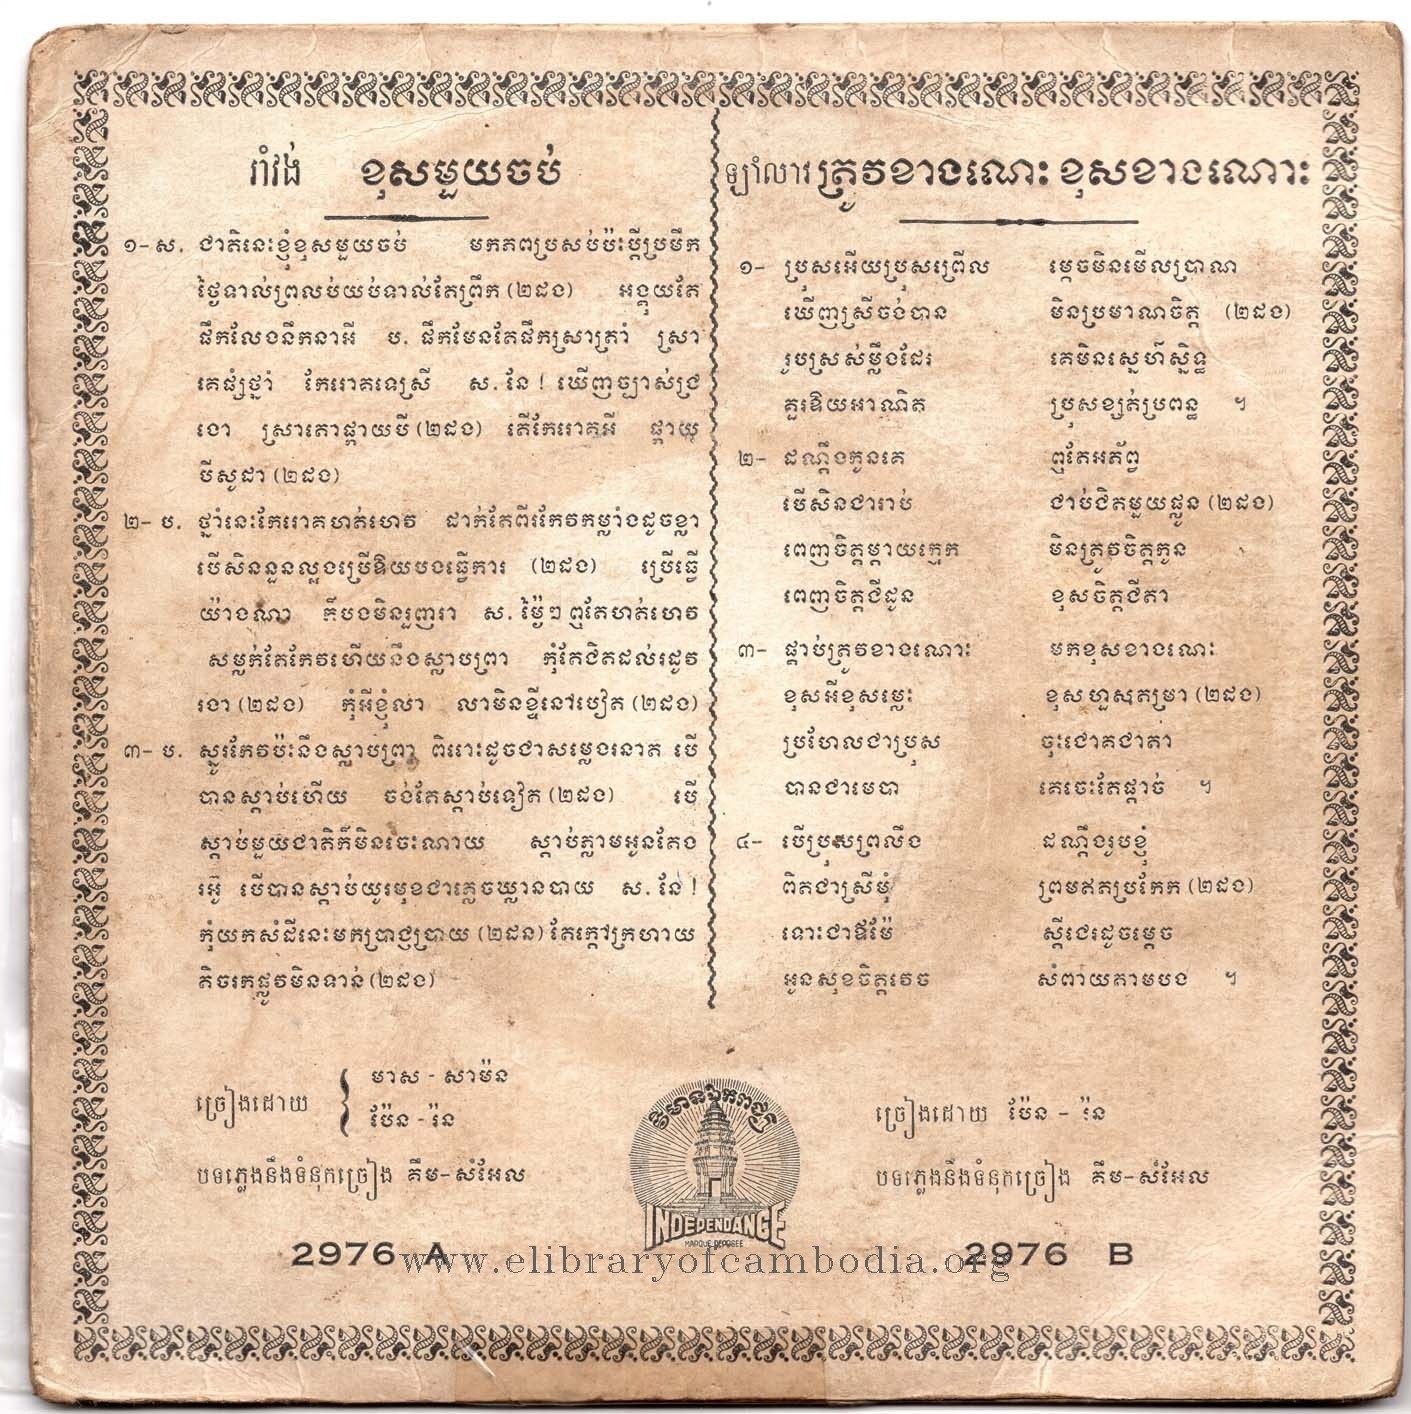 រាំវង់ ខុសមួយចប់
១- ស. ជាតិនេះខ្ញុំខុសមួយចប់ មកភពប្រសប់ប៉ះប្ដីប្រមឹក
ថ្ងៃទាល់ព្រលប់យប់ទាល់តែព្រឹក (២ដង) អង្គុយតែ
ផឹកលែងនឹកនាអី ប. ផឹកមែនតែផឹកស្រាត្រាំ ស្រា
គេផ្សំថ្នាំ កែរោគទេស្រី ស. នែ ! ឃើញច្បាស់ជ្រ
ងោ ស្រាតោផ្កាយបី (២ដង) តើកែរោគអី ផ្កាយ
បីសូដា (២ដង)
២- ប. ថ្នាំនេះកែរោគហត់ហេវ ដាក់តែពីរកែវកម្លាំងដូចខ្លា
បើសិននួនល្អងប្រើឱយបងធ្វើការ (២ដង) ប្រើធ្វើ
យ៉ាងណា ក៏បងមិនរួញរា ស. ម៉្យៃៗ ឮតែហត់ហេវ
សម្លក់តែកែវហើយនឹងស្លាបព្រា កុំតែងិតដល់រដូវ
រងា (២ដង) កុំអីខ្ញុំលា លាមិនខ្ចីនៅបៀត (២ដង)
៣- ប. សូរកែវប៉ះនឹងស្លាបព្រា ពិរោះដូចជាសម្លេងរនាត បើ
បានស្ដាប់ហើយ ចង់តែស្ដាប់ទៀត (២ដង) បើ
ស្ដាប់មួយជាតិក៏មិនចេះណាយ ស្ដាប់ភ្លាមអូនតែង
រអ៊ូ បើបានស្ដាប់យូរមុខជាភ្លេចឃ្លានបាយ ស. នែ !
កុំយកសំដីនេះមកប្រាជ្ញប្រាយ (២ដន) តែក្ដៅក្រហាយ
គិចរកផ្លូវមិនទាន់ (២ដង)
ច្រៀងដោយ មាស - សាម៉ន
ប៉ែន - រ៉ន
បទភ្លេងនឹងទំនុកច្រៀង គឹម-សំអែល
2976 A
ឡាំលាវ ត្រូវខាងណេះ ខុសខាងណោះ
១- ប្រុសអើយប្រុសព្រើល ម្ដេចមិនមើលប្រាណ
ឃើញស្រីចង់បាន មិនប្រមាណចិត្ត (២ដង)
រូបស្រស់ម្ល៉ឹងដែរ គេមិនស្នេហ៍ស្និទ្ធ
គួរឱយអាណិត ប្រុសខ្សត់ប្រពន្ធ ។
២- ដណ្ដឹងកូនគេ ឮតែអភ័ព្វ
បើសិនជារាប់ ជាប់ជិតមួយផ្លូន (២ដង)
ពេញចិត្តម្ដាយក្មេក មិនត្រូវចិត្តកូន
ពេញចិត្តជីដូន ខុសចិត្តជីតា
៣- ផ្ដាប់ត្រូវខាងណោះ មកខុសខាងណេះ
ខុសអីខុសម្លេះ ខុសហួសតម្រា (២ដង)
ប្រហែលជាប្រុស ចុះជោគជាតា
បានជាមេបា គេចេះតែផ្ដាច់ ។
៤- បើប្រុសព្រលឹង ដណ្ដឹងរូបខ្ញុំ
ពិតជាស្រីមុំ ព្រមឥតប្រកែក (២ដង)
ទោះជាឪម៉ែ ស្ដីជេរដូចម្ដេច
អូនសុខចិត្តវេច សំពាយតាមបង ។
ច្រៀងដោយ ប៉ែន - រ៉ន
បទភ្លេងនឹងទំនុកច្រៀង គឹម-សំអែល
2976 B
វិមានឯករាជ្យ
INDEPENDANCE
MARQUE DEPOSEE
www.elibraryofcambodia.org